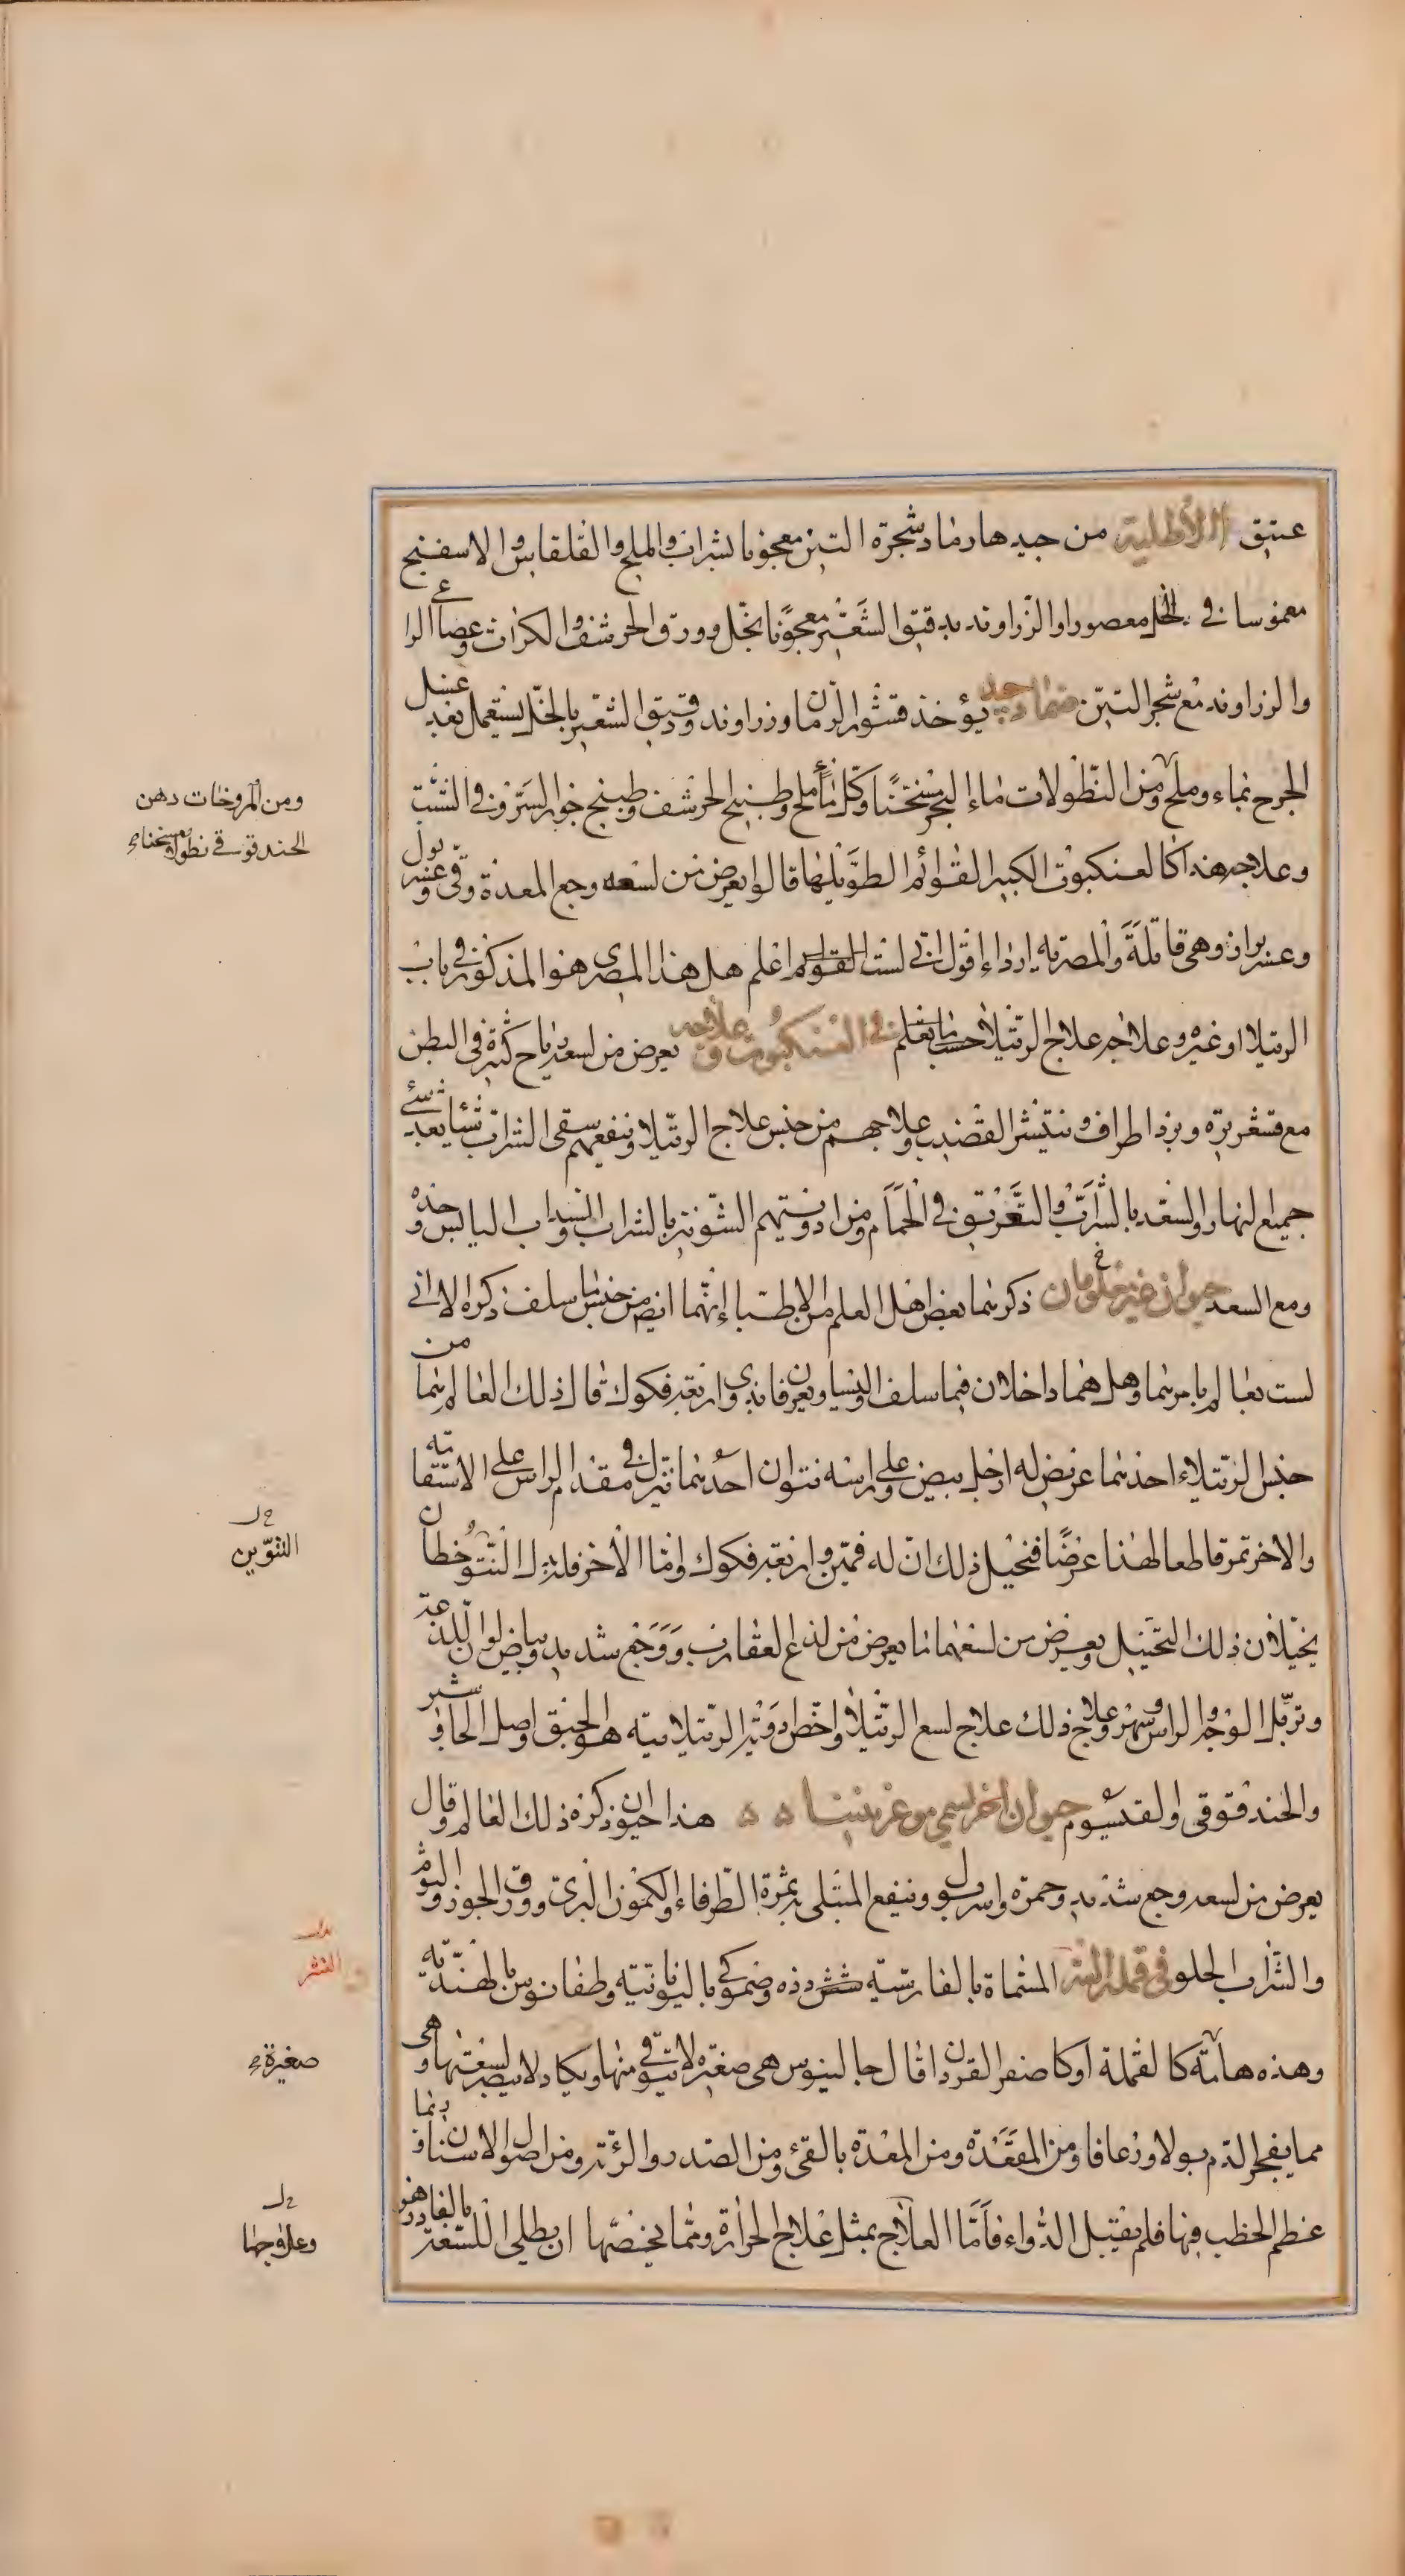 عتيق الأطلية من جيدها رماد شجرة التين معجونا بشراب والملح والقلقاس والاسفنج
مغموسا في الخل معصورا والزراوند بدقيق الشعير معجونا بخل وورق الحرشف والكراث وعصا الراعي
والزراوند مع شجر التين ضماد جيد يؤخذ قشور الرمان وزراوند ودقيق الشعير بالخل يستعمل بعد غسل
الجرح بماء وملح ومن النطولات ماء البحر مسخنا وكل ماء ملح وطبيخ الحرشف وطبيخ
وعلاجه هذا كالعنكبوت الكبير القوائم الطويلها قالوا يعرض من لسعه وجع المعدة وقئ وعسر بول
وعسر براز وهي قاتلة والمصرية اردا اقول اني لست اعلم هل هذا المصري هو المذكور في باب
الرتيلا او غيره وعلاجه علاج الرتيلا في العنكبوت وعلاجه يعرض من لسعه رياح كثيرة في البطن
مع قشعريرة وبرد اطراف وينتشر القضيب وعلاجهم من جنس علاج الرتيلا وينفعهم سقي الشراب شيئا بعد شئ
جميع النهار والسعد بالشراب والتعريق في الحمام ومن ادويتهم الشونيز بالشراب والسذاب اليابس وحده
ومع السعد حيوان غير معلومان ذكرهما بعض اهل العلم من الاطباء انهما ايضا من جنس ما سلف ذكره الا اني
لست بعالم بامرهما وهل هما داخلان فيما سلف او ليسا ويعرفان بذي وارنعة فكوك قال ذلك العالم هما من
جنس الرتيلاء احدهما عريض له ارجل بيض وعلى راسه نتوان احدهما ينزل في مقدم الراس على الاستقامة
والاخر تمر قاطعا لهذا عرضا فيخيل ذلك ان له فمين وارنعة فكوك واما الاخر فله بدل النتو خطان
يخيلان ذلك التخييل ويعرض من لسعهما ما يعرض من لذع العقارب ووجع شديد وبياض لون اللذعة
وتربل الوجه والراس وسهر وعلاج ذلك علاج لسع الرتيلا واخص ادوية الرتيلا به هو الحبق واصل الجاوشير
والحندقوقي والقيسوم حيوان اخر يسمى هذا حيوان ذكره ذلك العالم وقال
يعرض من لسعه وجع شديد وحمرة واسر بول وينفع المبتلى به ثمرة الطرفاء والكمون البري وورق الجوز والثوم
والشراب الحلو في قملة النسر المسماة بالفارسية دذه وضموكي باليونانية وطفانوس بالهندية
وهذه هامة كالقملة او كاصغر القردان قال جالينوس هي صغيرة لا يتوقى منها ويكاد لا يبصر لسعتها وهي
مما يفجر الدم بولا ورعافا ومن المقعدة ومن المعدة بالقئ ومن الصدر والرئة ومن اصول الاسنان وربما
عظم الخطب فيها فلم يقبل الدواء فاما العلاج بمثل علاج الحرارة ومما يخصها ان يطلى اللسعة بالفادزهر
ومن المروخات دهن
الحندقوقى
النتوين
صغيرة
وعلاجها